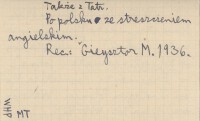 Także z Tatr.
Po polsku ze streszczeniem
angielskim.
Rec.: Gieysztor M. 1936.
WHP MT